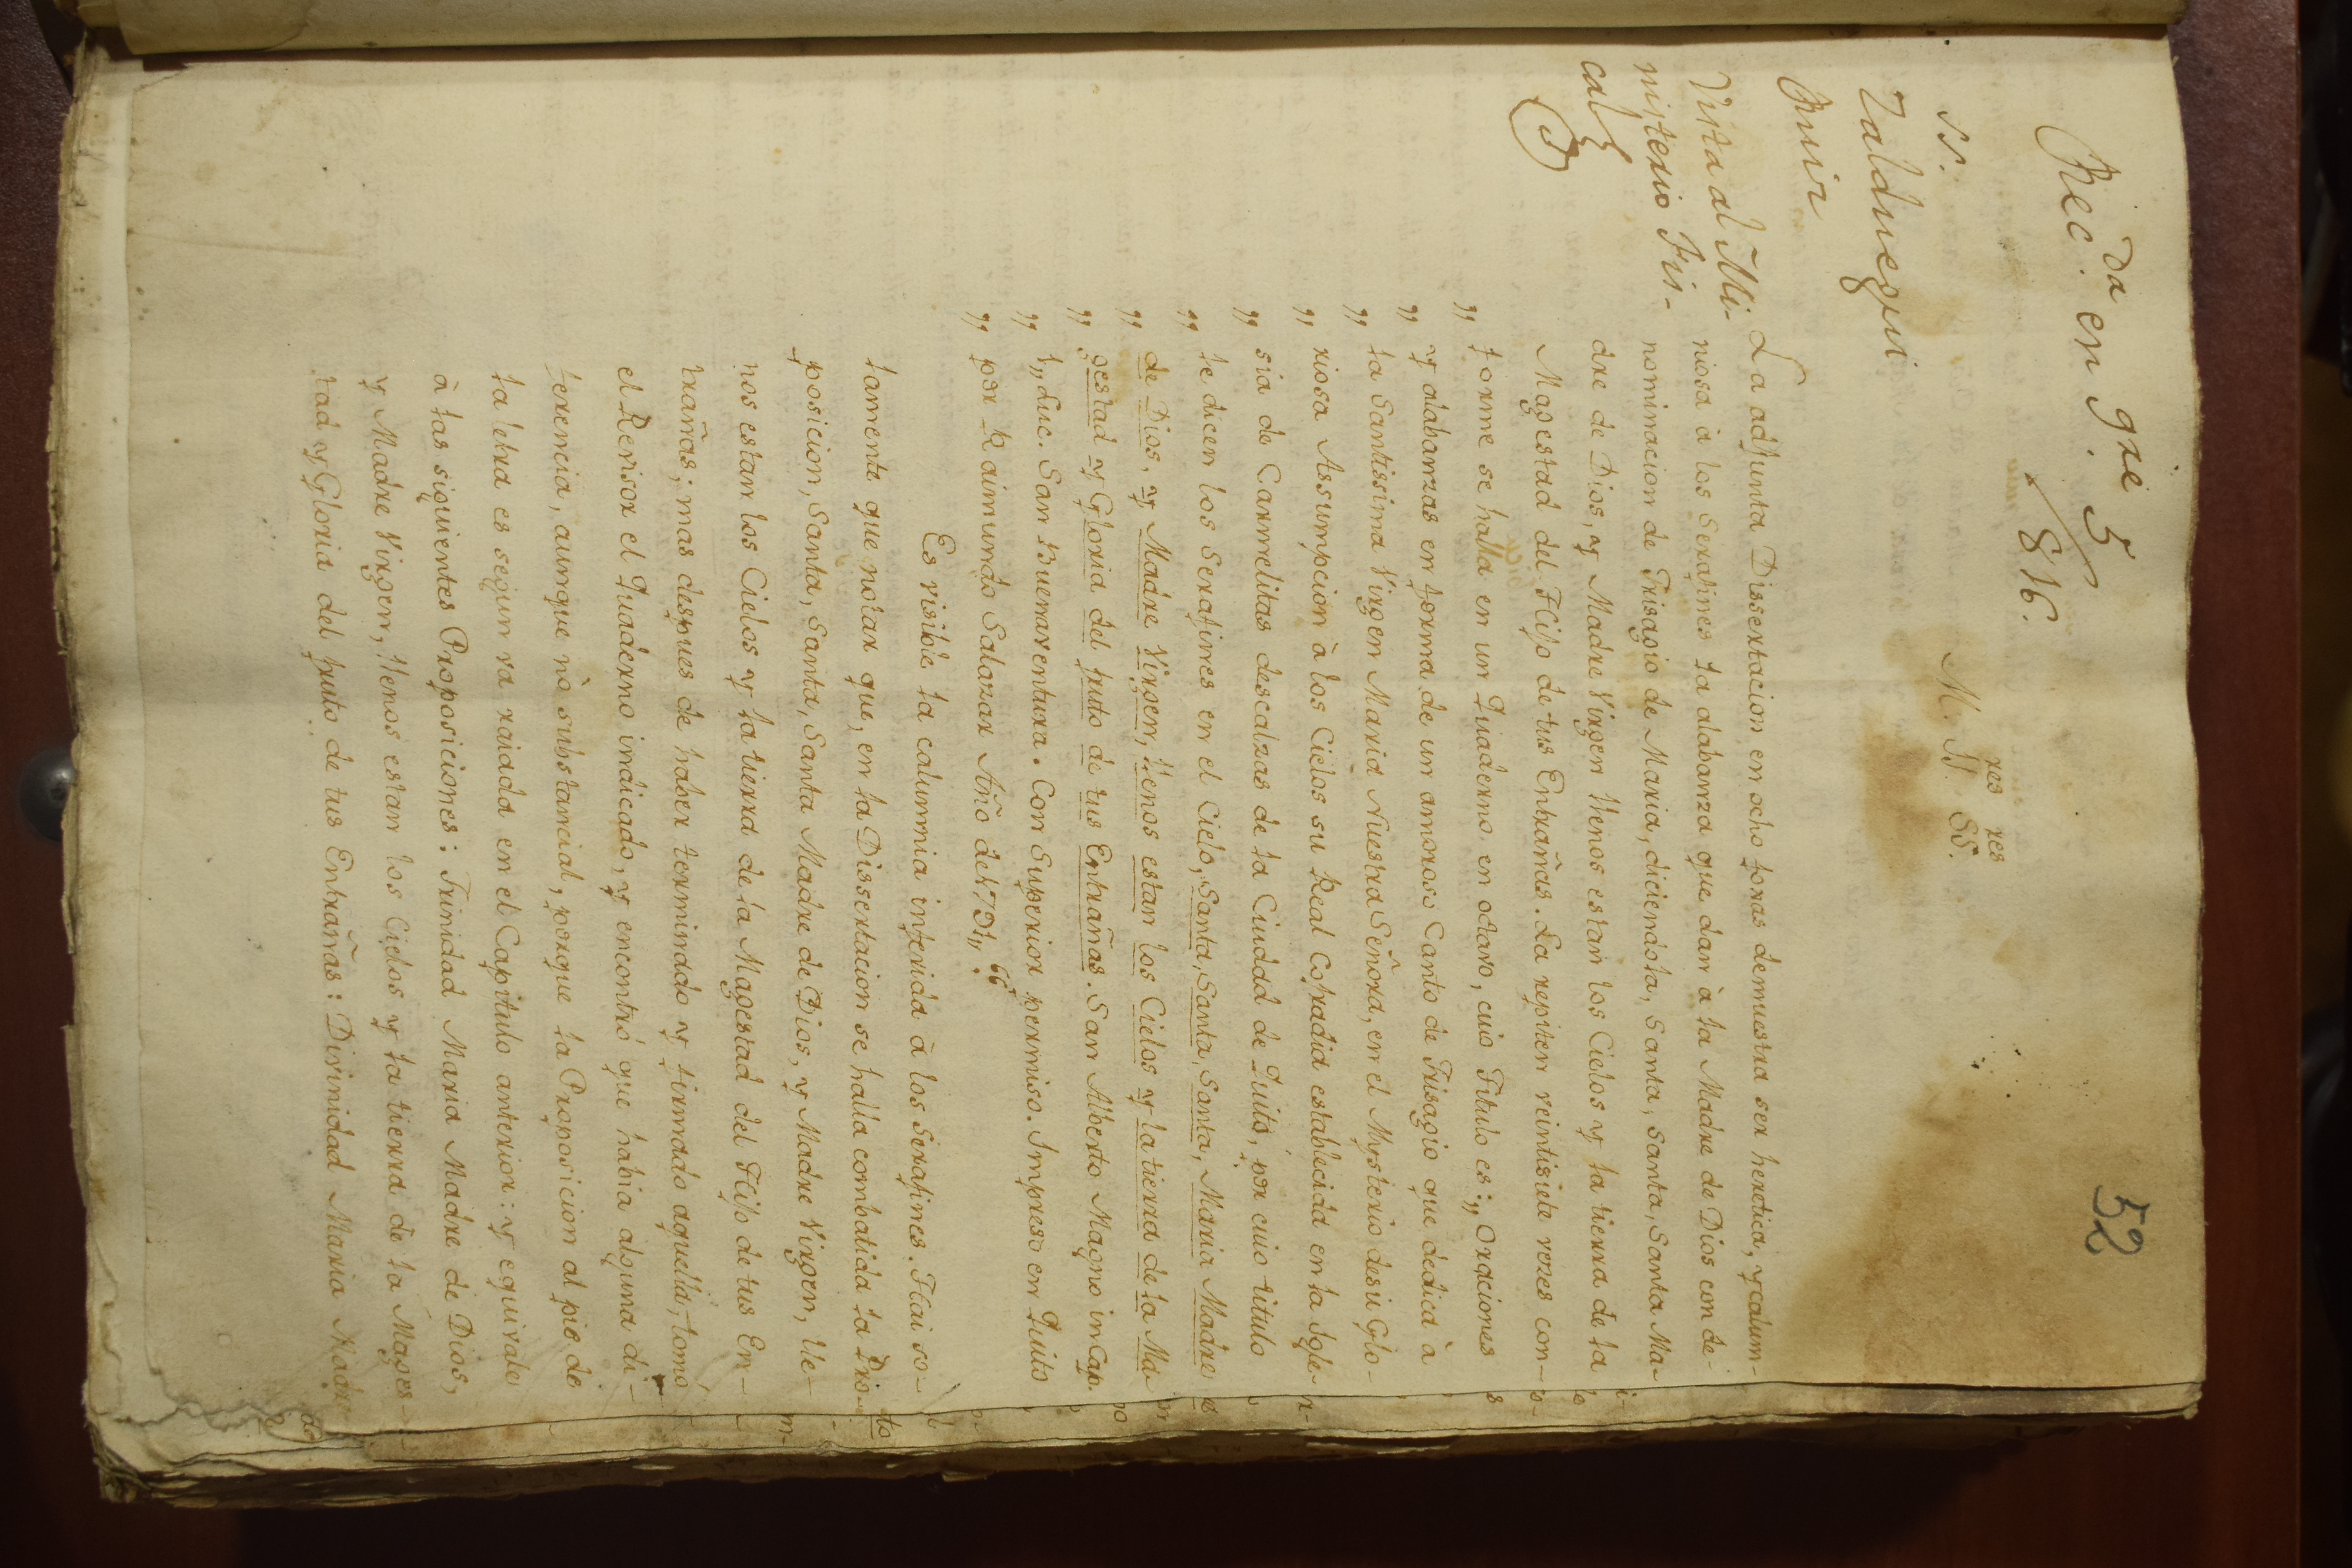 52
Rec.da en Gre. 5
816.
M. Y.res SS.res
SS.
Zalduegui
Ruiz
Vista al Mi-
nisterio Fis-
cal
La adjunta Dissertacion en ocho foxas demuestra ser heretica, y calum-
niosa à los Serafines la alabanza que dan à la Madre de Dios con de-
nominacion de Trisagio de Maria, diciendola, Santa, Santa, Santa Ma-
dre de Dios, y Madre Virgen llenos estan los Cielos y la tierra de la
Magestad del Hijo de tus Entrañas. La repiten veintisiete vezes con-
forme se halla en un Quaderno en octavo, cuio Titulo es: „ Oraciones
„ y alabanzas en forma de un amoroso Canto de Trisagio que dedica à
„ la Santissima Virgen Maria Nuestra Señora, en el Mysterio de su Glo-
„ riosa Assumpcion à los Cielos su Real Cofradia establecida en la Igle-
„ sia de Carmelitas descalzas de la Ciudad de Quito, por cuio titulo
„ le dicen los Serafines en el Cielo, Santa, Santa, Santa, Maria Madre
„ de Dios, y Madre Virgen, llenos estan los Cielos y la tierra de la Ma-
„ gestad y Gloria del fruto de tus Entrañas. San Alberto Magno in Cap.
„ 1„ Luc. San Buenaventura. Con Superior permiso. Impreso en Quito
„ por Raimundo Salazar Año de 1791„.
Es visible la calumnia inferida à los Serafines. Hai so-
lamente que notar que, en la Dissertacion se halla combatida la Pro-
posicion, Santa, Santa, Santa Madre de Dios, y Madre Virgen, lle-
nos estan los Cielos y la tierra de la Magestad del Hijo de tus En-
trañas; mas despues de haber terminado y firmado aquella, tomó
el Revisor el Quaderno indicado, y encontró que habia alguna di-
ferencia, aunque nò substancial, porque la Proposicion al pie de
la letra es segun va raiada en el Capitulo anterior: y equivale
à las siguientes Proposiciones: Trinidad Maria Madre de Dios,
y Madre Virgen, llenos estan los Cielos y la tierra de la Mages-
tad y Gloria del fruto de tus Entrañas: Divinidad Maria Madre